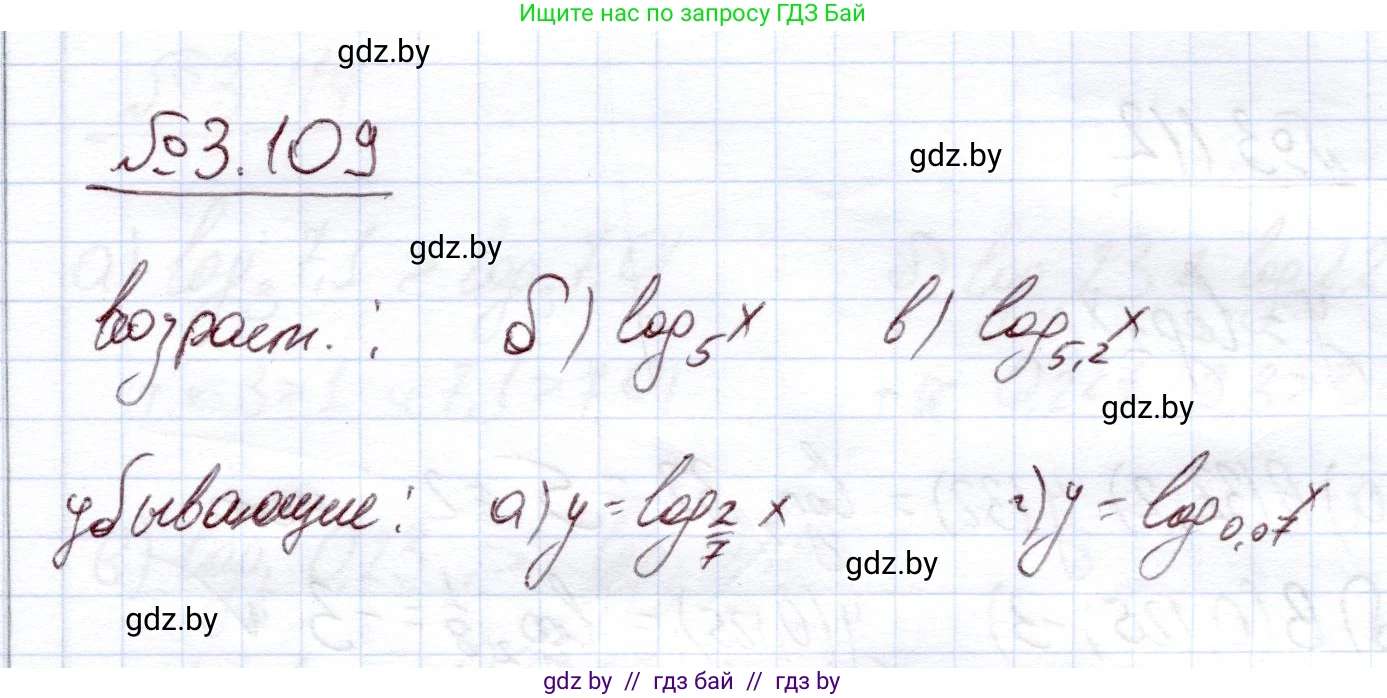 Ищите нас по запросу ГДЗ Бай
gdz.by
№3.109
gdz.by
gdz.by
возраст.: б) log₅x в) log₅,₂x
gdz.by
убывающие: а) y = log_{2/7} x г) y = log_{0,07} x
gdz.by
gdz.by
gdz.by // гдз бай // гдз by